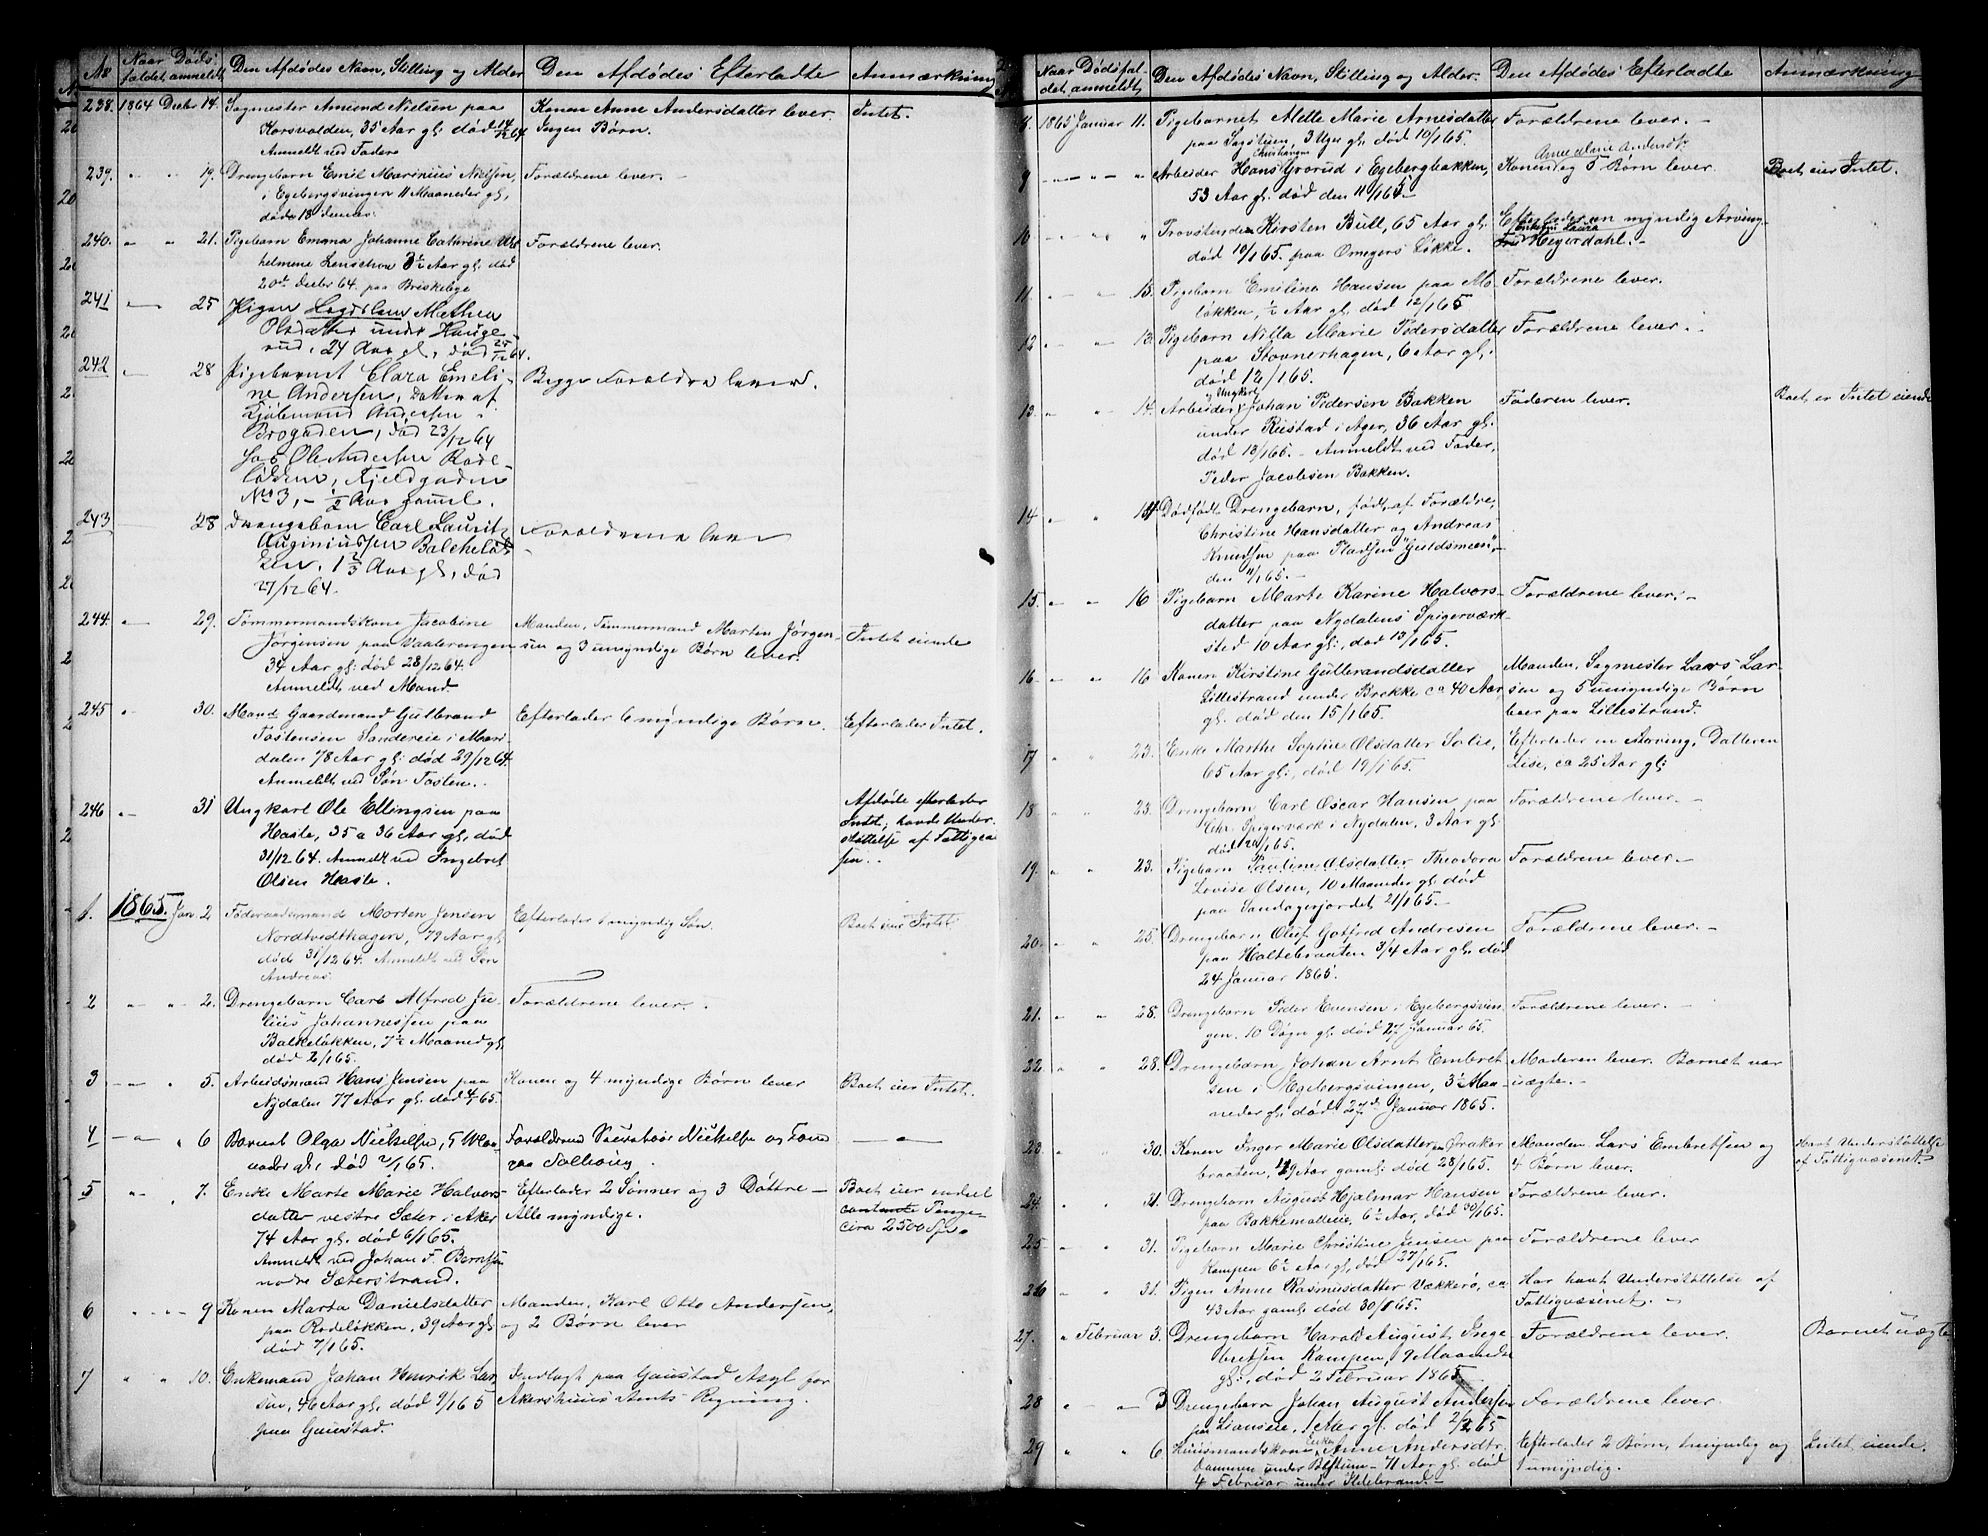 No
Naar Døds-
faldet anmeldt
Den Afdødes Navn, Stilling og Alder
Den Afdødes Efterladte
Anmærkning
238. 1864 Decbr 14. Sagmester Amund Nielsen paa
Korsvolden, 35 Aar gl. død 14/12 64
Anmeldt ved Fader
Konen Anne Andersdatter lever
Ingen Børn.
Intet.
239. " " 19. Drengebarn Emil Marinius Nielsen,
i Egebergsvingen 11 Maaneder gl,
død 18 dennes.
Forældrene lever. –
240. " " 21. Pigebarn Emma Johanne Cathrine Vil-
helmene Lenschow 3½ Aar gl. død
20de Decbr 64. paa Briskeby
Forældrene lever.
241 – 25 Pigen Mathea
Olsdatter under Hauge-
rud, 24 Aar gl, død 25/12 64.
242 – 28 Pigebarnet Clara Emeli-
ne Andersen, Datter af
Kjøbmand Andersen i
Brogaden, død 23/12 64
hos Ole Andersen Rode-
løkken, Fjeldgaden
No 3, – ½ Aar gammel.
Begge Forældre lever.
243 28 Drengebarn Carl Laurits
Auginiussen Balkeløk-
ken, 1 2/3 Aar gl, død
27/12 64.
Forældrene lever
244. " 29. Tømmermandskone Jacobine
Jørgensen paa Vaalerengen
34 Aar gl. død 28/12 64.
Anmeldt ved Mand
Manden, Tømmermand Morten Jørgen-
sen og 3 umyndige Børn lever.
Intet eiende
245 " 30. Mand Gaardmand Gulbrand
Tostensen Sandereie i Mari-
dalen 78 Aar gl. død 29/12 64.
Anmeldt ved Søn Tosten.
Efterlader 6 myndige Børn.
Efterlader Intet.
246 " 31 Ungkarl Ole Ellingsen paa
Hasle, 35 a 36 Aar gl, død
31/12 64. Anmeldt ved Ingebret
Olsen Hasle.
Afdøde efterlader
Intet; havde Under-
støttelse af Fattigvæ-
sen.
1. 1865. Jan. 2 Føderaadsmand Morten Jensen
Nordtvedthagen, 79 Aar gl
død 31/12 64. Anmeldt ved Søn
Andreas.
Efterlader 1 myndig Søn.
Boet eier Intet
2 " " 2. Drengebarn Carl Alfred Ju-
lius Johannessen paa
Balkeløkken, 7½ Maaned gl,
død 2/1 65.
Forældrene lever.
3 – " 5. Arbeidsmand Hans Jensen paa
Nydalen 77 Aar gl. død 4/1 65.
Konen og 4 myndige Børn lever
Boet eier Intet.
4 – " – " 6 Barnet Olga Nickelsen, 5 Maa-
neder gl, død 2/1 65.
Forældrene Nickelsen og Kone
paa
– " –
5 " " 7. Enke Marte Marie Halvors-
datter vestre Sæter i Aker
74 Aar gl. død 6/1 65.
Anmeldt ved Johan F. Berntsen
nodre Sæterstrand.
Efterlader 2 Sønner og 3 Døttre –
Alle myndige.
Boet eier endeel
contante Penge –
circa 2500 Spd.
6 " " – " 9 Konen Marta Danielsdatter
paa Rodeløkken, 39 Aar gl
død 7/1 65.
Manden, Karl Otto Andersen,
og 2 Børn lever
7 " " 10. Enkemand Johan Henrik Lar-
sen, 46 Aar gl, død 9/1 65
paa Gaustad.
Indlagt paa Gaustad Asyl for
Akershuus Amts Regning.
Naar Dødsfal-
det anmeldt
Den Afdødes Navn, Stilling og Alder.
Den Afdødes Efterladte
Anmærkning
8. 1865 Januar 11. Pigebarnet Mette Marie Arnesdatter
paa Sagstuen 3 Uger gl. død 10/1 65.
Forældrene lever. –
Christiansen
9 – " – " " Arbeider Hans Grorud i Egebergbakken,
53 Aar gl. død den 11/1 65.
Anne Marie Andersdtr
Konen og 5 Børn lever.
Boet eier Intet.
10 – " " " Provstinde Kirsten Bull, 65 Aar gl.
død 10/1 65. paa Omegers Løkke.
Efterlader en myndig Arving
Enkefru Laura
Fru Hegerdahl. –
11. – " " 13. Pigebarn Emiline Hansen paa Mo-
løkken, ½ Aar gl. død 12/1 65
Forældrene lever.
12 – " " 13. Pigebarn Nilla Marie Pedersdatter
paa Stovnerhagen, 6 Aar gl,
død 12/1 65.
Forældrene lever.
og Ungkarl
13. " " 14. Arbeider Johan Pedersen Bakken
under Rustad i Ager, 36 Aar gl.
død 13/1 65. – Anmeldt ved Fader,
Peder Jacobsen Bakken.
Faderen lever.
Boet er Intet eiende
14 – " " 14 Dødfødt Drengebarn, født af Forældre,
Christine Hansdatter og Andreas
Knudsen paa Pladsen "Guldsmeen",
den 11/1 65. –
15. – " " 16 Pigebarn Marte Karine Halvors-
datter paa Nydalens Spigerværk-
sted 10 Aar gl. død 13/1 65.
Forældrene lever. –
16 – " " 16 Konen Kirstine Gulbrandsdatter
Lillestrand under Brekke ca 40 Aar
gl. død den 15/1 65.
Manden, Sagmester Lars Lar-
sen og 5 umyndige Børn
lever paa Lillestrand.
17 " " 23. Enke Marthe Sophie Olsdatter Solie,
65 Aar gl, død 19/1 65.
Efterlader en Arving, Datteren
Lise, ca 25 Aar gl:
18 " " 23. Drengebarn Carl Oscar Hansen paa
Chr. Spigerværk i Nydalen, 3 Aar gl.
død 20/1 65.
Forældrene lever. –
19. " " 23. Pigebarn Pauline Olsdatter Theodora
Lovise Olsen, 10 Maaneder gl. død
paa Sandagerjordet 21/1 65. –
Forældrene lever. –
20. " " 25. Drengebarn Oluf Gotfred Andresen
paa Holtebraaten 3/4 Aar gl. død
24 Januar 1865.
Forældrene lever. –
21. " " 28. Drengebarn Peder Evensen i Egebergsvin-
gen. 10 Døgn gl. død 27 Januar 65.
Forældrene lever. –
22. " " 28. Drengebarn Johan Arnt Embret-
sen i Egebergsvingen, 3½ Maa-
neder gl. død 27de Januar 1865.
Moderen lever. Barnet var
uægte. –
23. " " 30. Konen Inger Marie Olsdatter Øraker-
braaten, 49 Aar gaml. død 28/1 65.
Manden Lars Embretsen og
4 Børn lever.
Havt Understøttelse
af Fattigvæsenet.
24. " " 31. Drengebarn August Hjalmar Hansen
paa Bakkemølleeie, 6½ Aar, død 30/1 65.
Forældrene lever.
25 – " " 31. Pigebarn Marie Christine Jensen paa
Kampen 6½ Aar gl, død 27/1 65.
Forældrene lever
26 " " 31. Pigen Anne Rasmusdatter Vækkerø, ca
43 Aar gaml. død 30/1 65.
Har havt Understøttelse af
Fattigvæsenet. –
27. " Februar 3. Drengebarn Harald August Inge-
bretsen Kampen, 9 Maaneder
gl., død 2 Februar 1865
Forældrene lever.
Barnet uægte
28 " – " 3 Drengebarn Johan August Andersen
paa Lianseie, 1 Aar gl. død 2/2 65
Forældrene lever.
Enke
29 " " 6 Huusmandskone Anne Andersdtr.
Dammen under – 71 Aar gl. død
4 Februar under Hildebrand. –
Efterlader 2 Børn, 1 myndig og
1 umyndig.
Intet eiende.